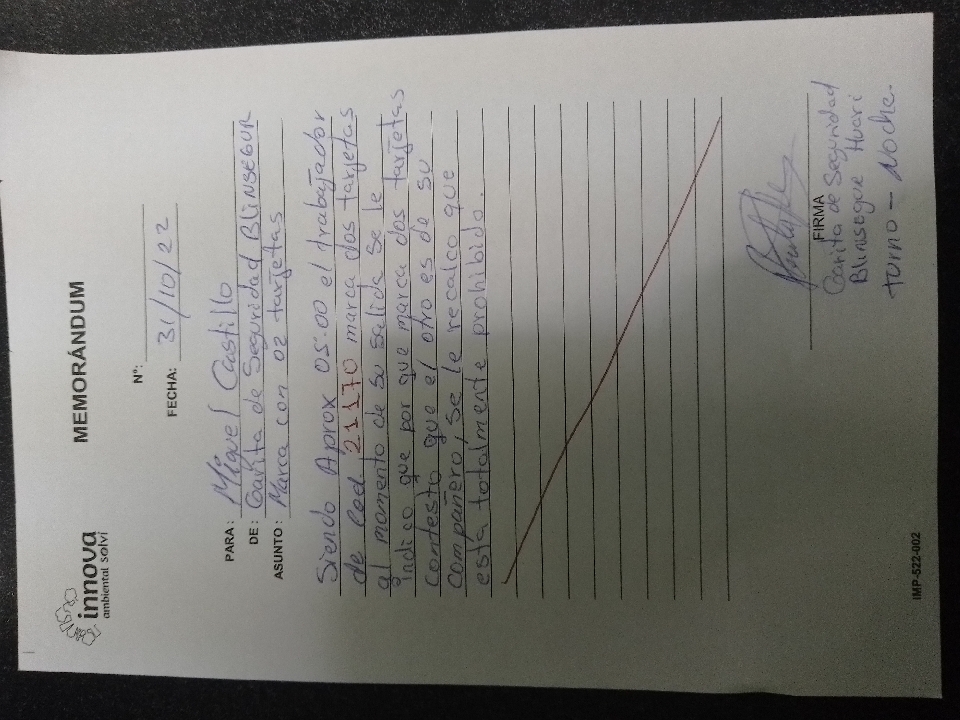 innova
ambiental solvi
MEMORÁNDUM
Nº:
FECHA: 31/10/22
PARA: Miguel Castillo
DE: Garita de Seguridad BLINSEGUR
ASUNTO: Marca con 02 tarjetas
Siendo Aprox 05:00 el trabajador
de Cod. 21170 marca dos tarjetas
al momento de su salida se le
indico que por que marca dos tarjetas
contesto que el otro es de su
compañero, se le recalco que
está totalmente prohibido.
FIRMA
Garita de Seguridad
Blinsegur Huari
turno - Noche.
IMP-522-002